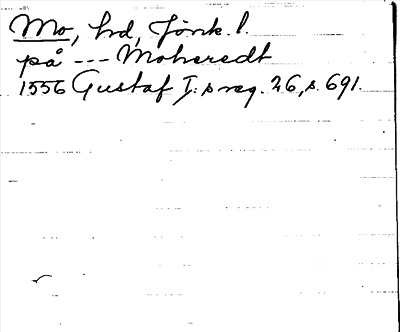 Mo, hd, Jönk. l.
på --- Moheredt
1556 Gustaf I:s reg. 26, s. 691.